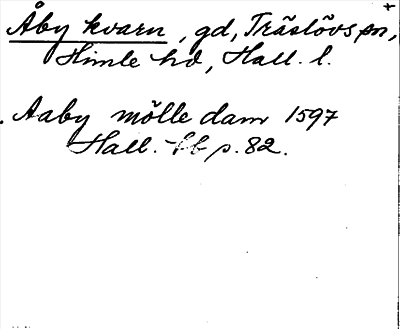 Åby kvarn, gd, Träslövs sn,
Himle hd, Hall. l.
Aaby mölle dam 1597
Hall. p. 82.